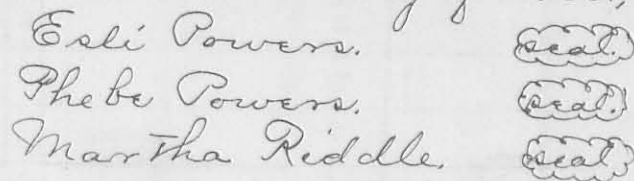 Esli Powers. seal.
Phebe Powers. seal.
Martha Riddle. seal